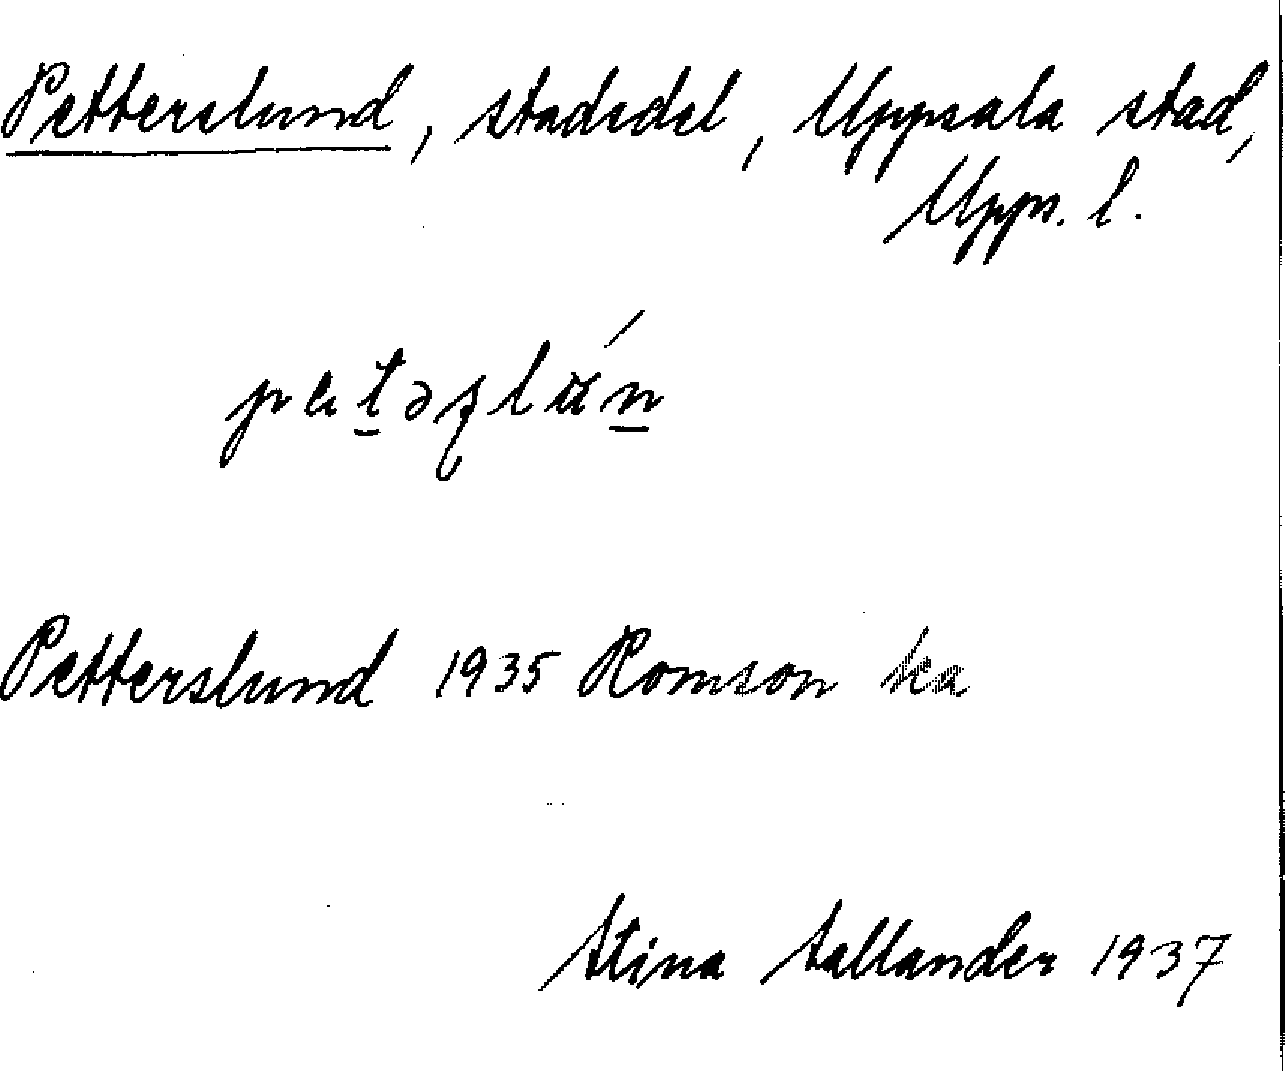 Petterslund, stadsdel, Uppsala stad,
Upps. l.
Petterslund 1935 Romson ka
Stina Sallander 1937